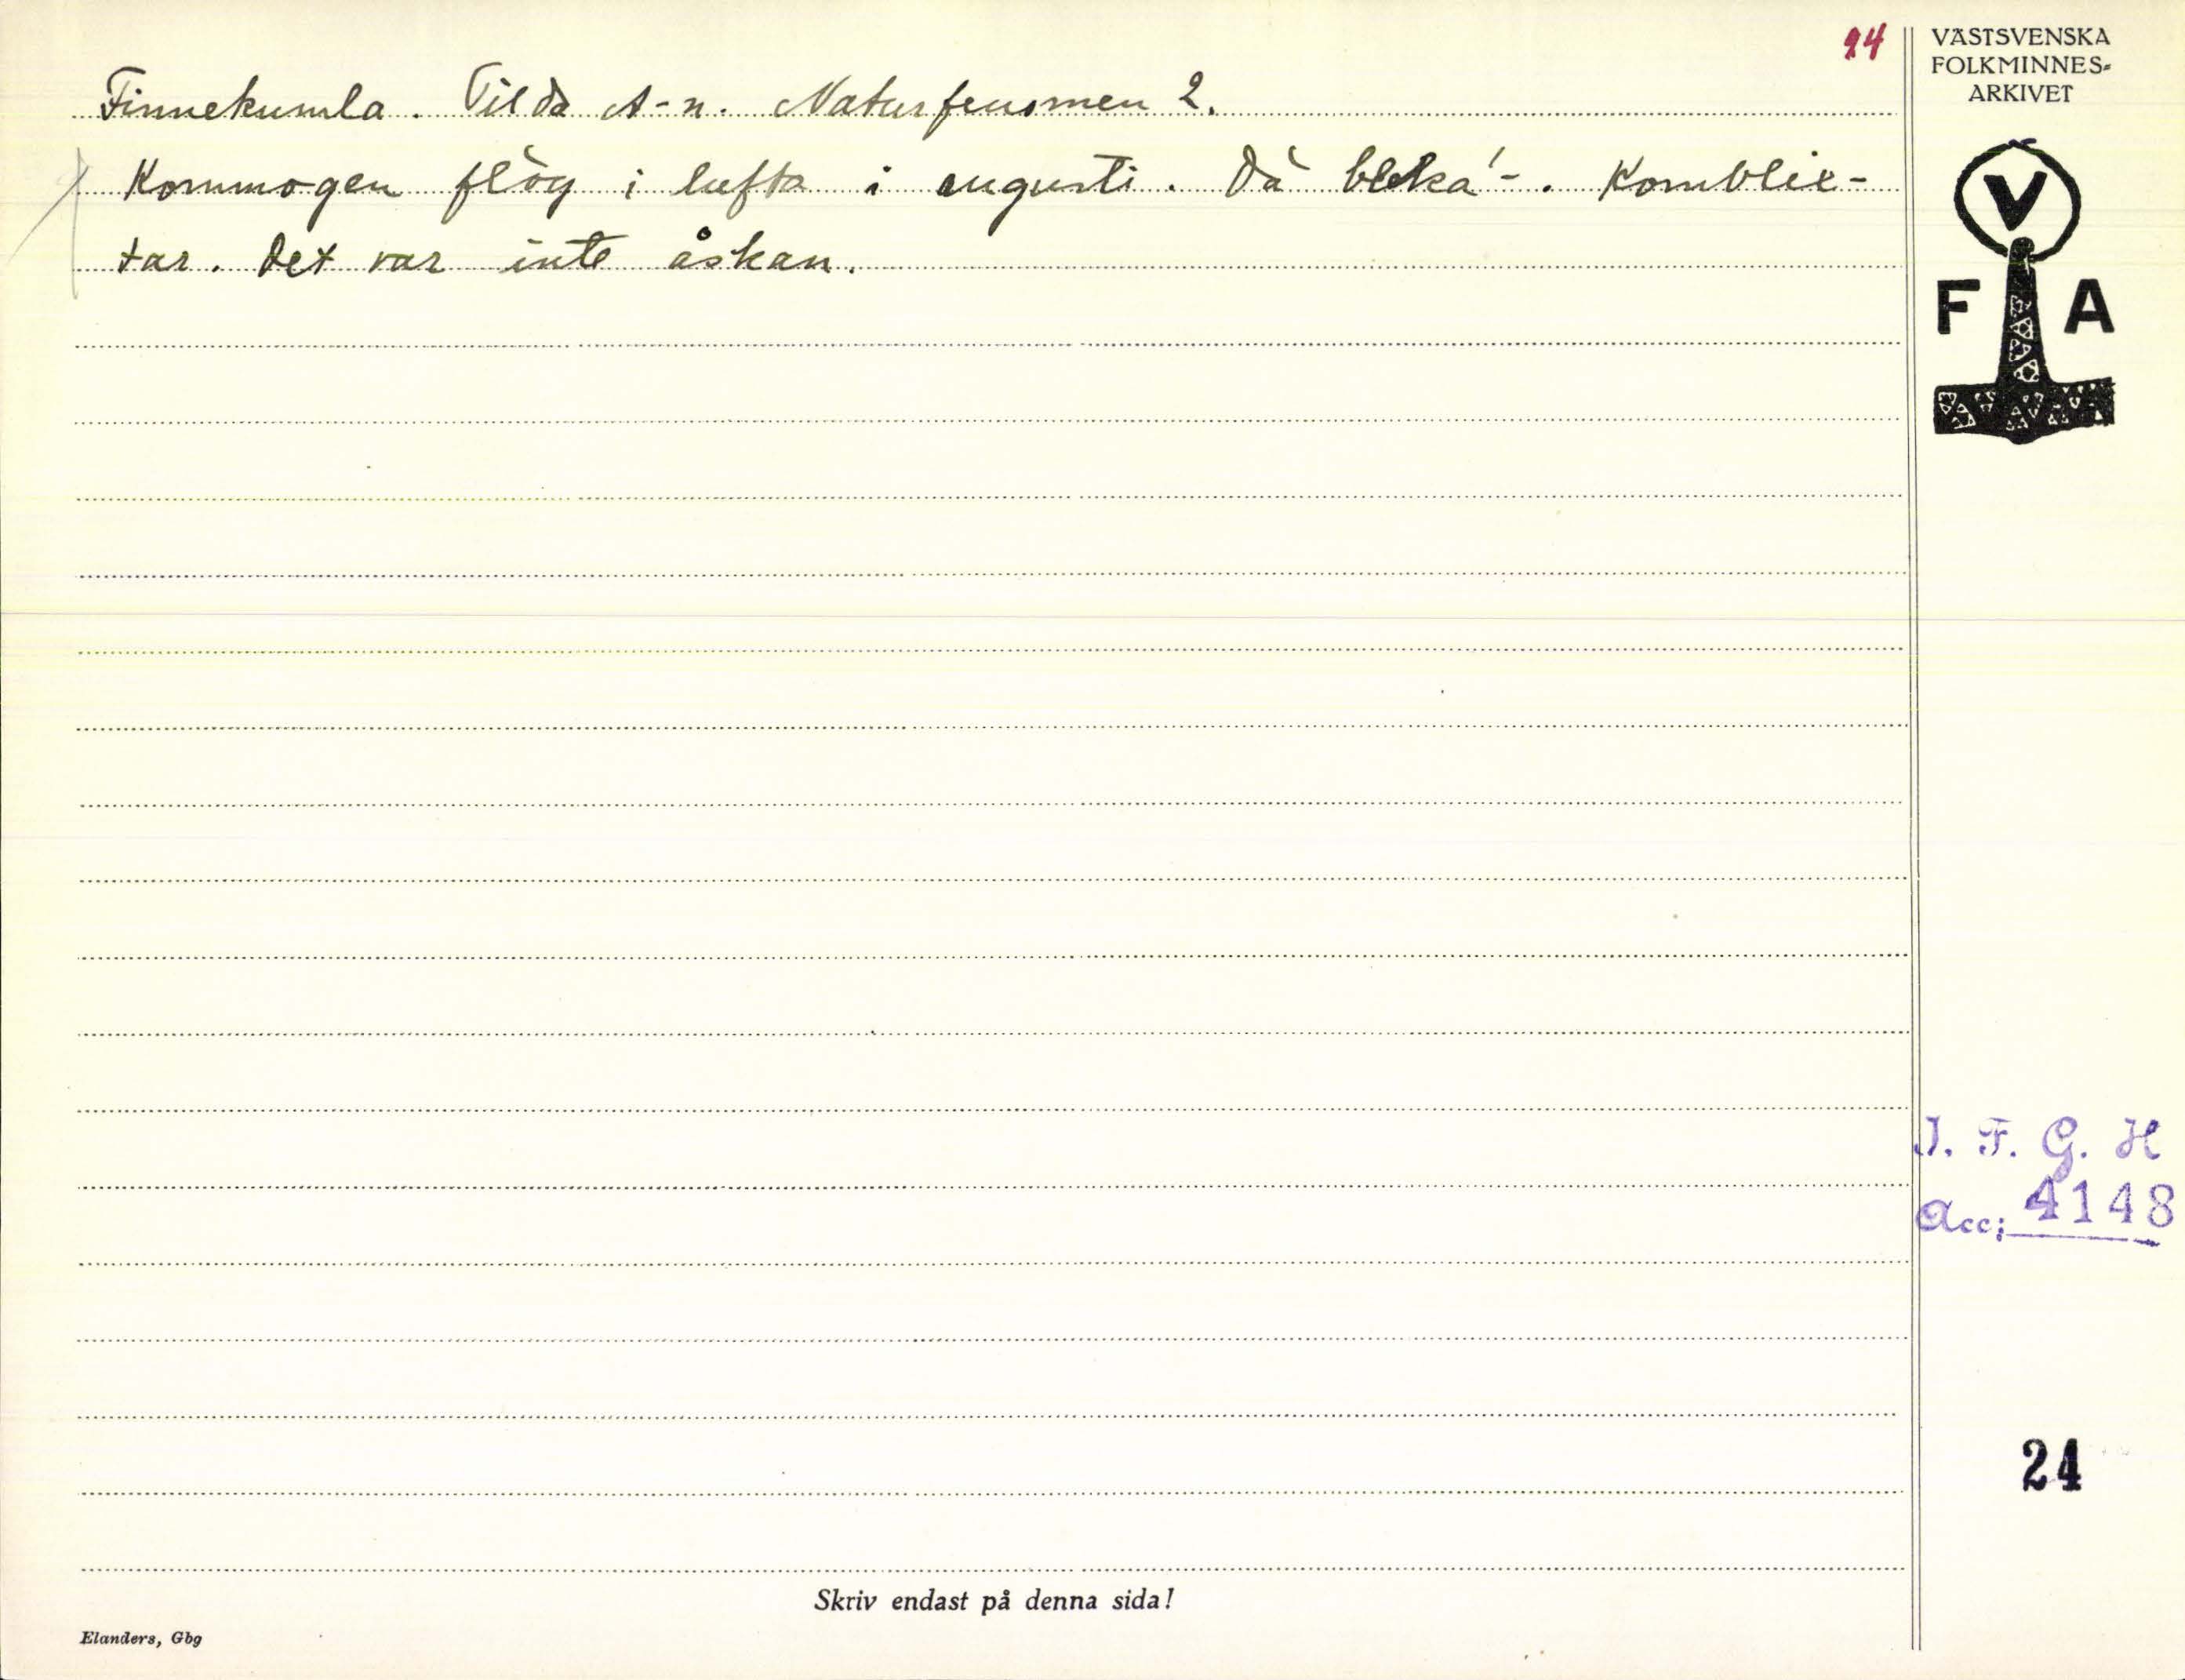 94
Finnekumla. Tilda A-n. Naturfenomen 2.
Kornmogen flòg i lufta i augusti. Dà bleka'-. Kornblix-
tar. Det var inte åskan.
VÄSTSVENSKA
FOLKMINNES-
ARKIVET
V
F A
I. F. G. H
Acc: 4148
24
Skriv endast på denna sida!
Elanders, Gbg